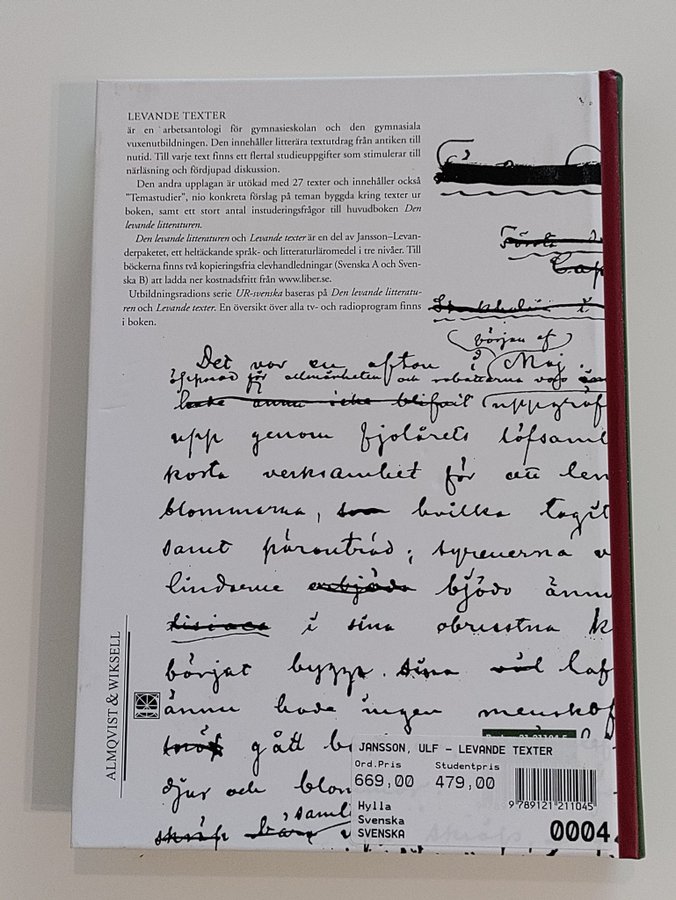 LEVANDE TEXTER
är en arbetsantologi för gymnasieskolan och den gymnasiala
vuxenutbildningen. Den innehåller litterära textutdrag från antiken till
nutid. Till varje text finns ett flertal studieuppgifter som stimulerar till
närläsning och fördjupad diskussion.
Den andra upplagan är utökad med 27 texter och innehåller också
"Temastudier", nio konkreta förslag på teman byggda kring texter ur
boken, samt ett stort antal instuderingsfrågor till huvudboken Den
levande litteraturen.
Den levande litteraturen och Levande texter är en del av Jansson–Levan-
derpaketet, ett heltäckande språk- och litteraturläromedel i tre nivåer. Till
böckerna finns två kopieringsfria elevhandledningar (Svenska A och Sven-
ska B) att ladda ner kostnadsfritt från www.liber.se.
Utbildningsradions serie UR-svenska baseras på Den levande litteratu-
ren och Levande texter. En översikt över alla tv- och radioprogram finns
i boken.
början af
Det var en afton i Maj.
öppnad för allmänheten och rabatterna voro
hade ännu icke blifvit uppgräf
upp genom fjolårets löfsaml
korta verksamhet för att lem
blommorna, som hvilka tagit
samt päronträd; syrenerna
lindarne bjödo ännu
i sina obrustna k
börjat bygga sina
ännu hade ingen menskof
gått
djur och blom
saml
ALMQVIST & WIKSELL
JANSSON, ULF - LEVANDE TEXTER
Ord.Pris Studentpris
669,00 479,00
9 789121 211045
Hylla
Svenska
SVENSKA
0004